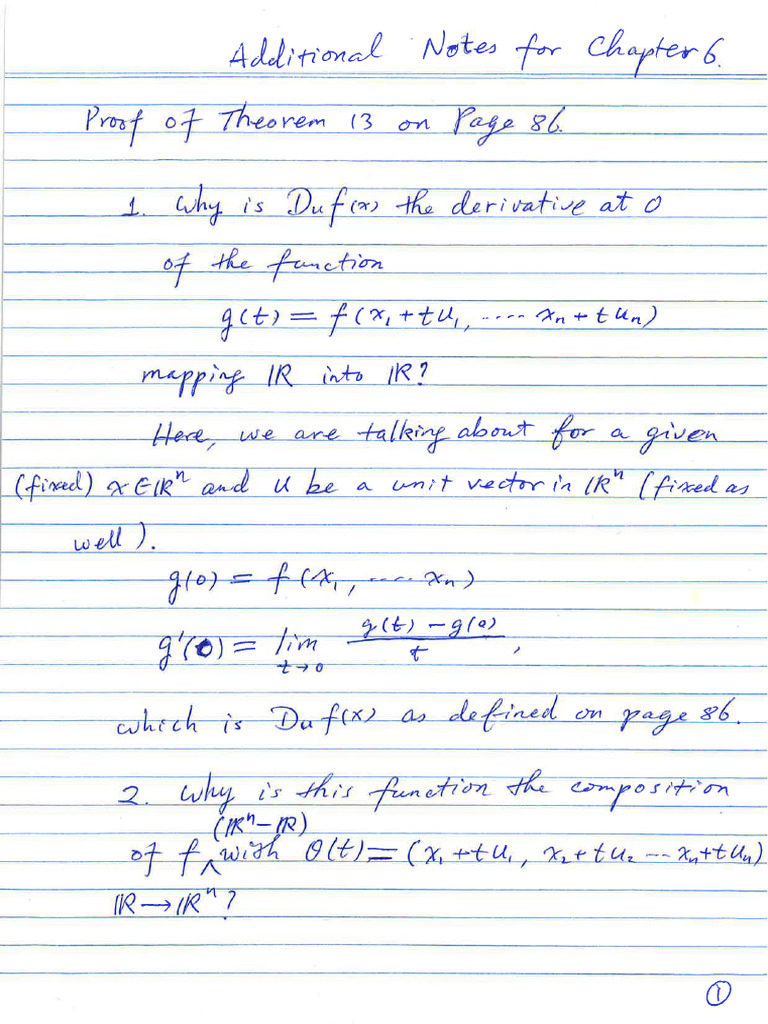 Additional Notes for Chapter 6.
Proof of Theorem 13 on Page 86.
1. Why is Duf(x) the derivative at 0
of the function
g(t) = f(x₁ + tu₁, ..... xn + tun)
mapping ℝ into ℝ?
Here, we are talking about for a given
(fixed) x ∈ ℝⁿ and u be a unit vector in ℝⁿ (fixed as
well).
g(0) = f(x₁, ..... xn)
g'(0) = lim t→0 (g(t) - g(0))/t,
which is Duf(x) as defined on page 86.
2. Why is this function the composition
(ℝⁿ-ℝ)
of f ^ with θ(t) = (x₁ + tu₁, x₂ + tu₂ ... xn + tun)
ℝ → ℝⁿ?
1